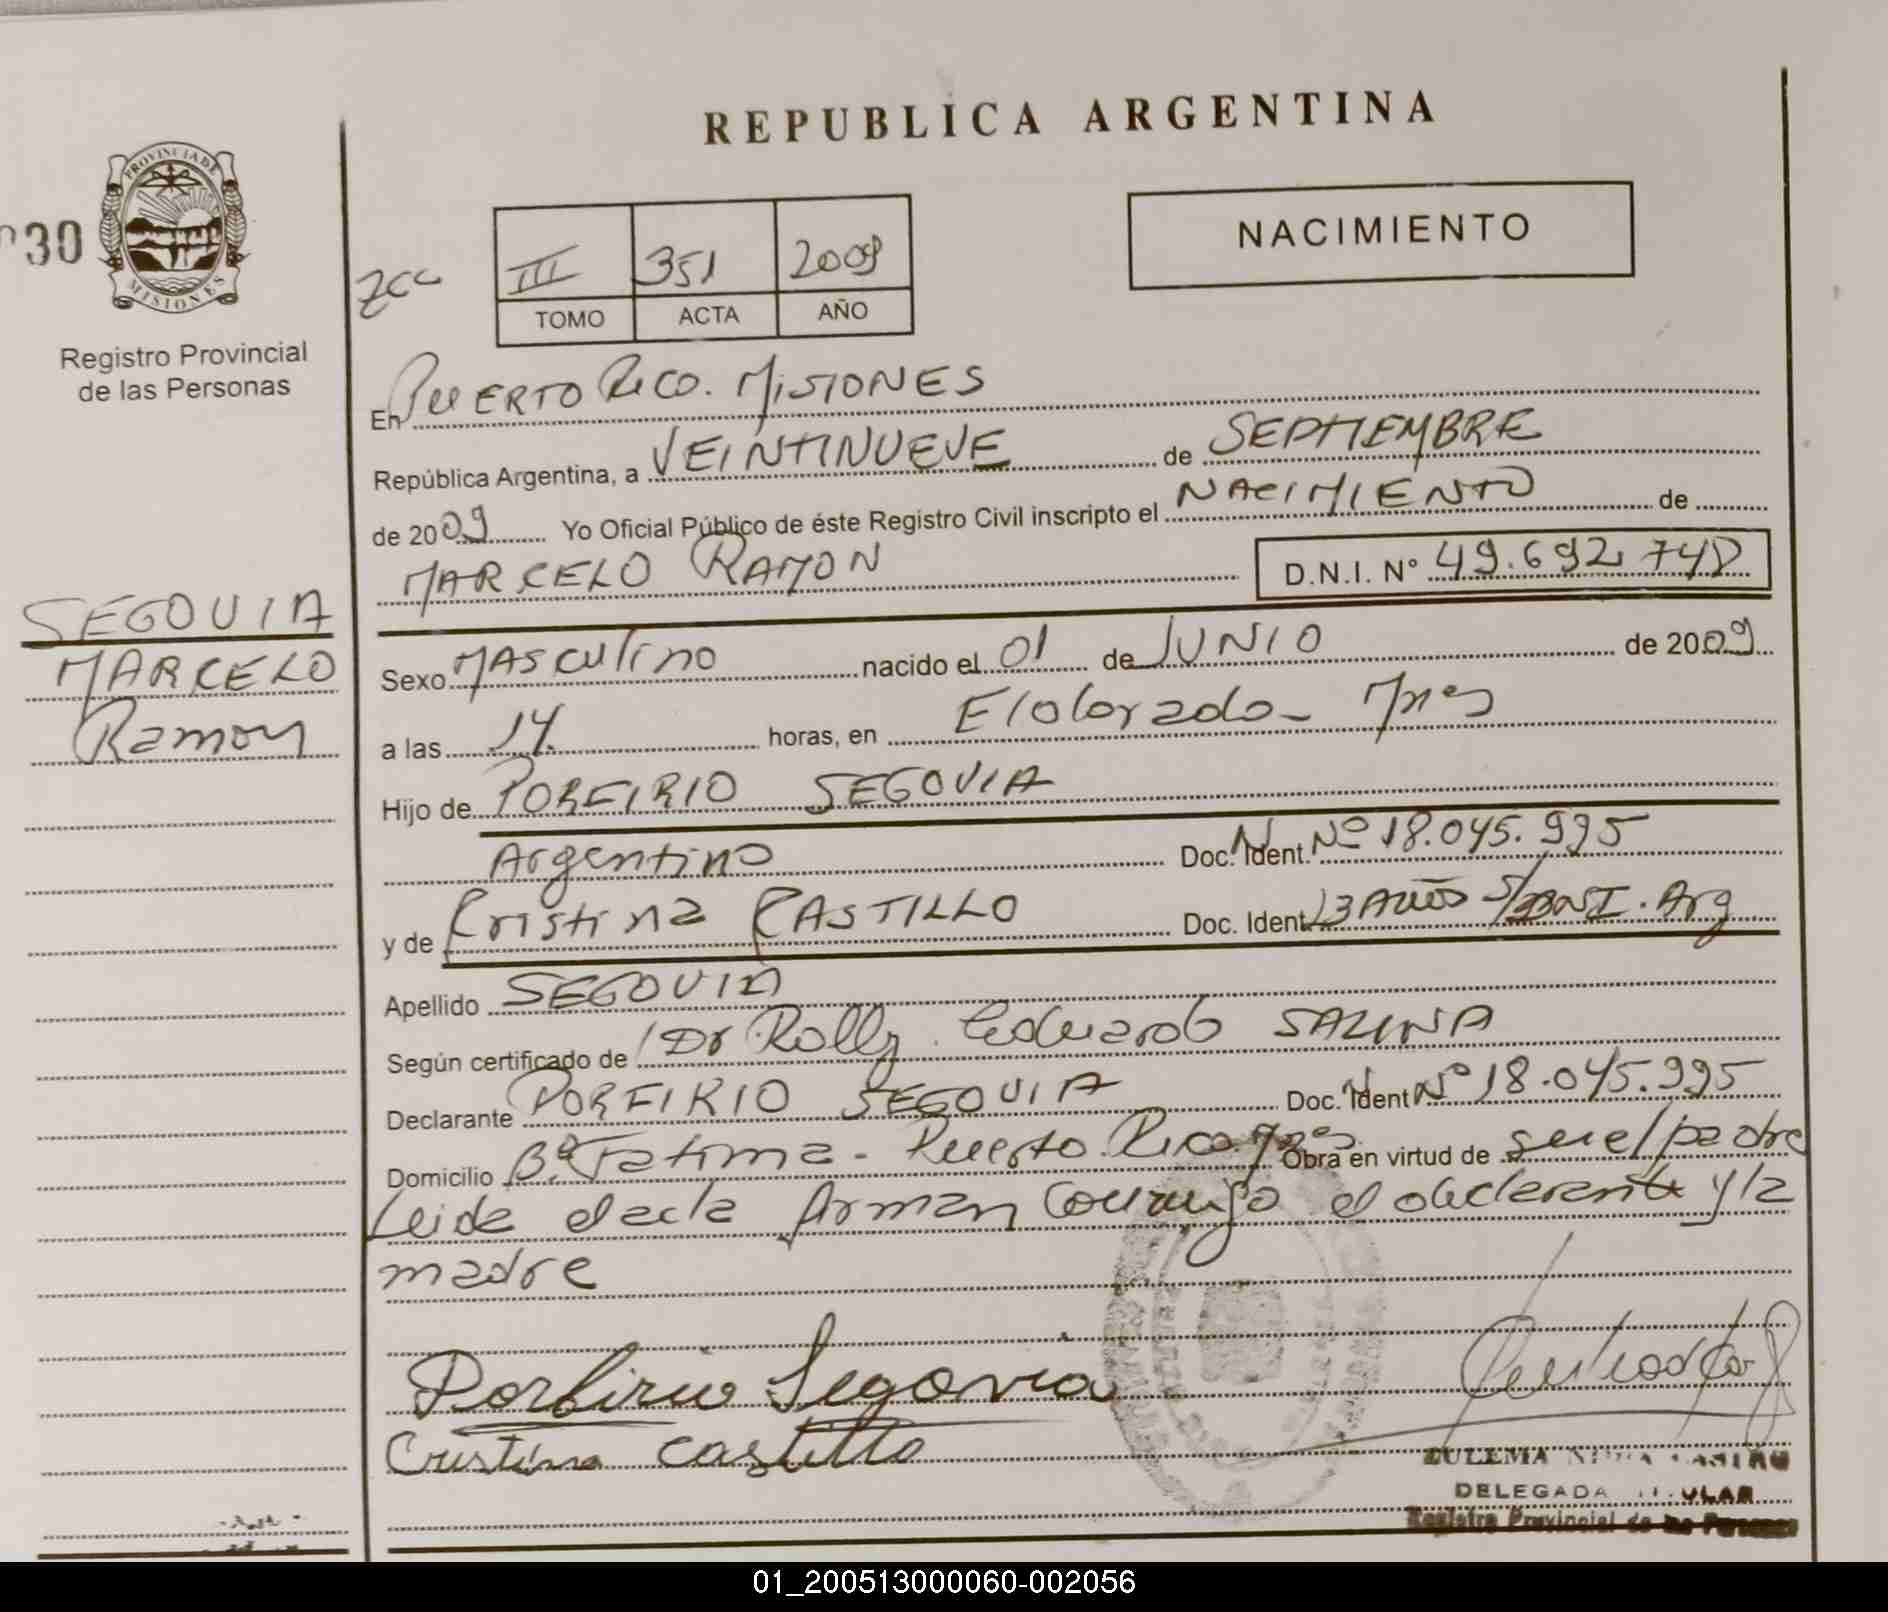 REPUBLICA ARGENTINA
30
PROVINCIA DE
MISIONES
Registro Provincial
de las Personas
III 351 2009
TOMO ACTA AÑO
NACIMIENTO
En PUERTO RICO. MISIONES
República Argentina, a VEINTINUEVE de SEPTIEMBRE
de 2009 Yo Oficial Público de éste Registro Civil inscripto el NACIMIENTO de
MARCELO RAMON D.N.I. Nº 49.692.740
SEGOVIA
MARCELO
Ramon
Sexo MASCULINO nacido el 01 de JUNIO de 2009
a las 14. horas, en Eldorado - Mnes
Hijo de PORFIRIO SEGOVIA
Argentino Doc. N. Ident. Nº 18.045.995
y de Cristina CASTILLO Doc. Ident. 13 AÑOS S/DNI. Arg
Apellido SEGOVIA
Según certificado de Dr Rolly Eduardo SALINA
Declarante PORFIRIO SEGOVIA Doc. N. Ident Nº 18.045.995
Domicilio Bº Fatima - Puerto Rico Mnes Obra en virtud de ser el padre
Leida el acta firman conmigo el declarante y la
madre
Porfirio Segovia
Cristina Castillo
ZULEMA CASTRO
DELEGADA TITULAR
Registro Provincial de las Personas
01_200513000060-002056